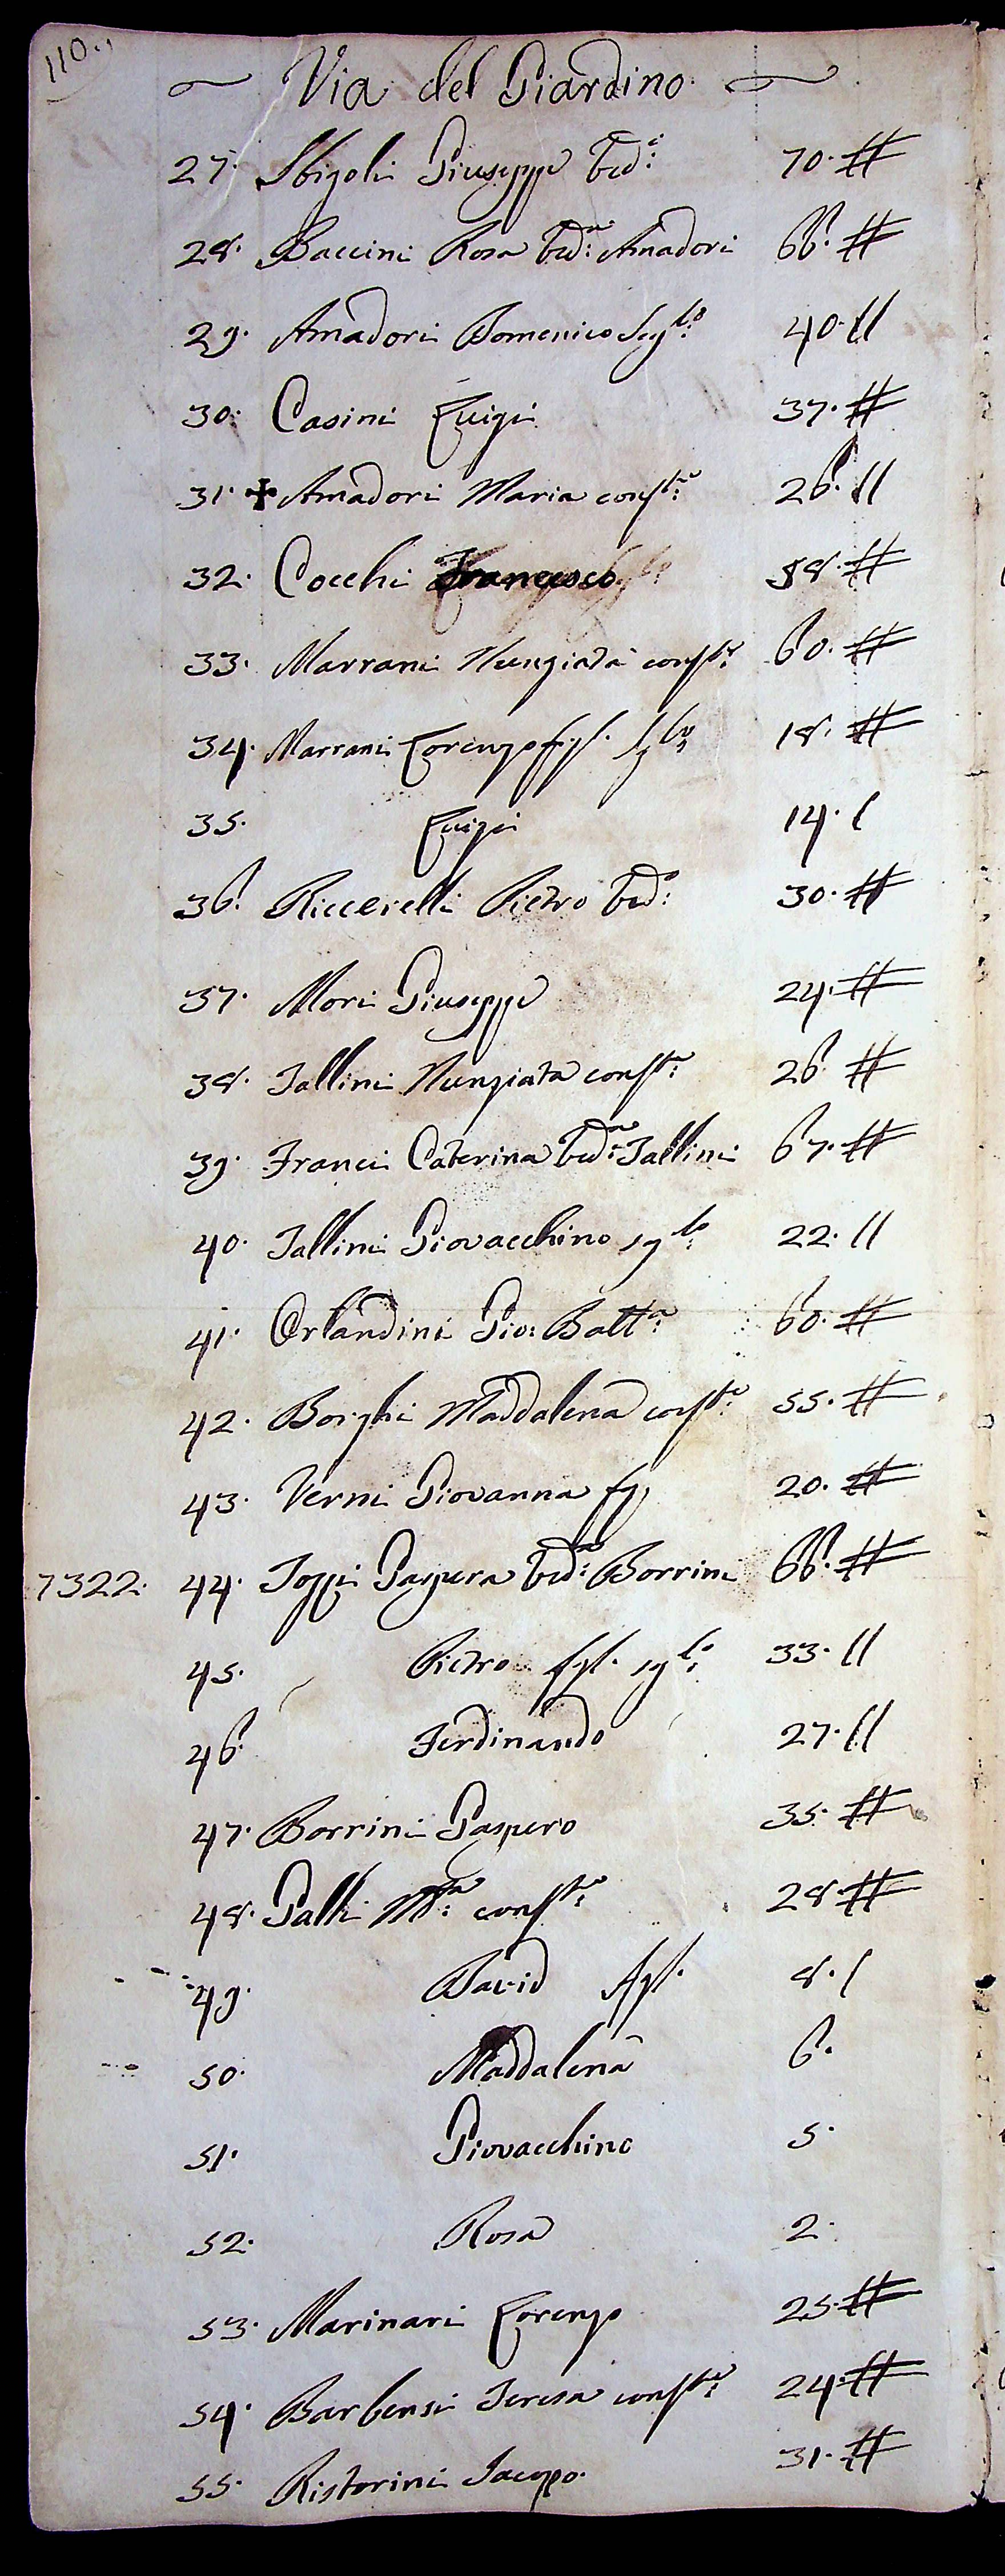 110.
Via del Giardino
27. Sbigoli Giuseppe Ved:o 70. #
28. Baccini Rosa Ved:a Amadori 66. #
29. Amadori Domenico Scg:lo 40. //
30. Casini Luigi 37. #
31. ✠ Amadori Maria consr:te 26. //
32. Cocchi Francesco 58. #
33. Marrani Nunziata consr:te 60. #
34. Marrani Lorenzo figl. sg:lo 18. #
35. Luigi 14. /
36. Riccerelli Pietro Ved:o 30. #
37. Mori Giuseppe 24. #
38. Tallini Nunziata consr:te 26 #
39. Franci Caterina Ved:a Tallini 67. #
40. Tallini Giovacchino sg:lo 22. //
41. Orlandini Gio: Batt:a 60. #
42. Borghi Maddalena consr:te 55. #
43. Verni Giovanna fg. 20. #
7322. 44. Ved:a Borrini 66. #
45. Pietro figl. sg:lo 33. //
46. Ferdinando 27. //
47. Borrini Gaspero 35. #
48. Galli M:a consr:te 28. #
49. David figl. 8. /
50. Maddalena 6.
51. Giovacchino 5.
52. Rosa 2.
53. Marinari Lorenzo 25. #
54. Barbensi Teresa consr:te 24. #
55. Ristorini Jacopo. 31. #